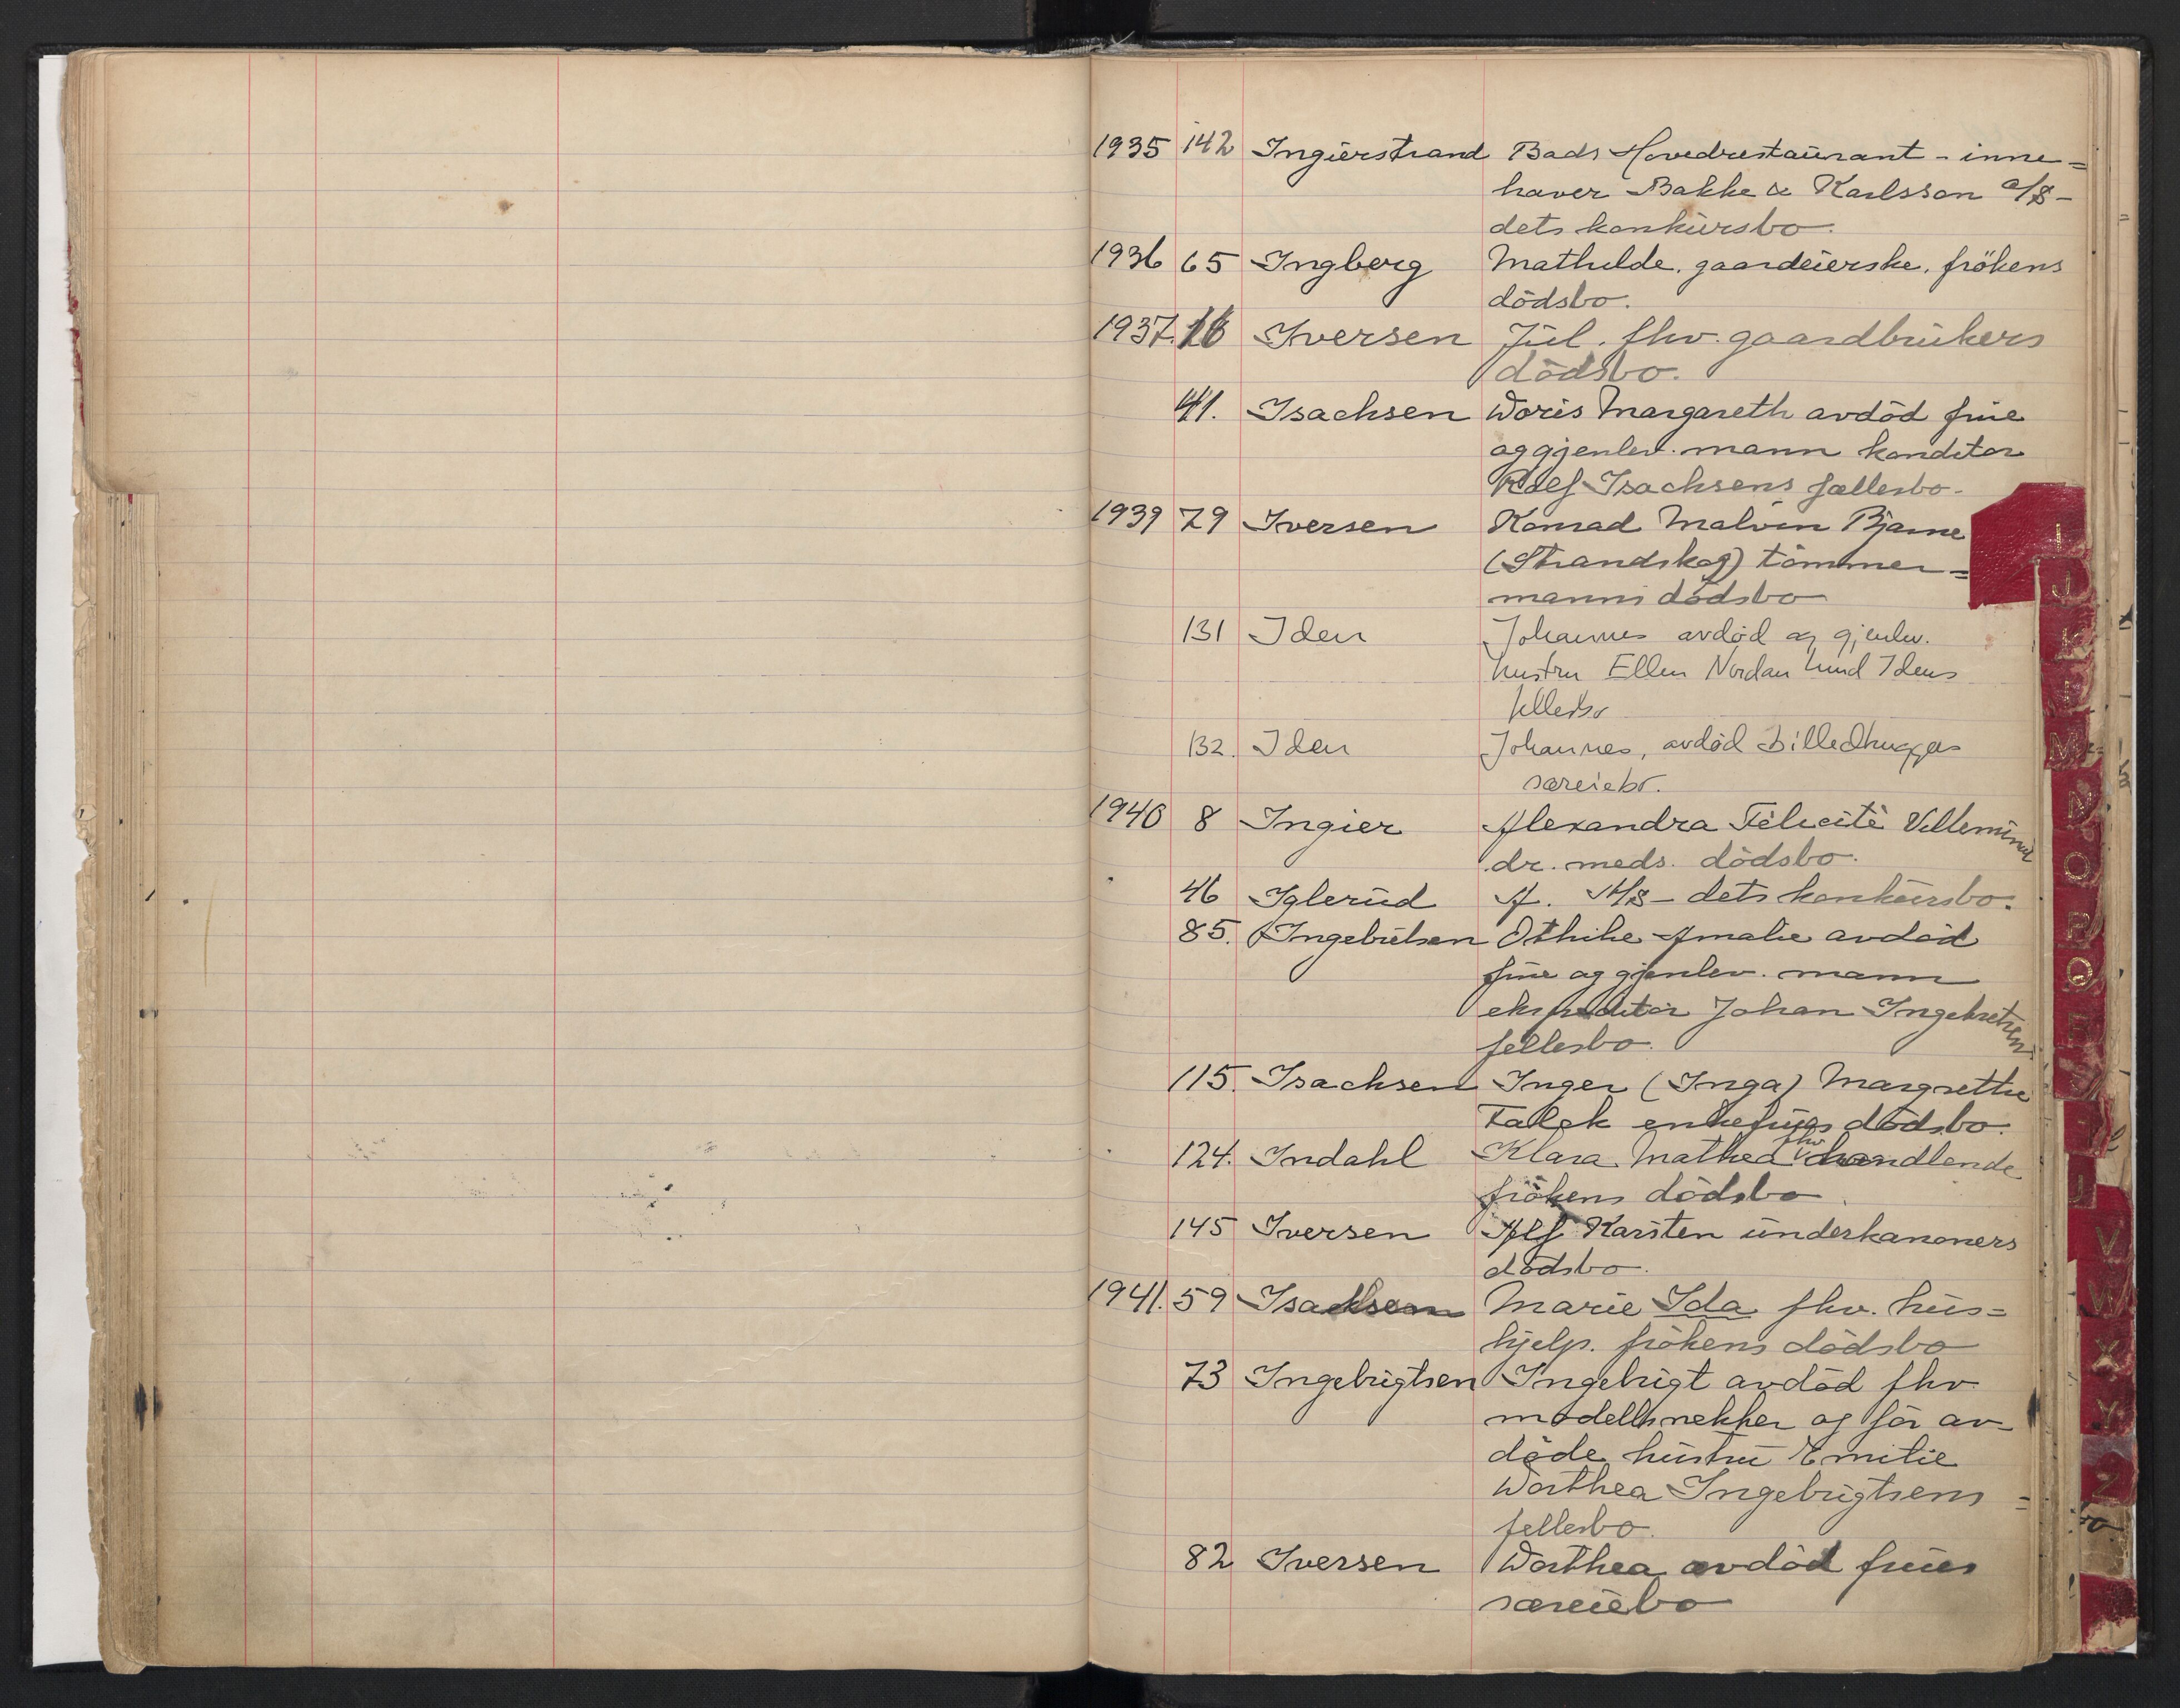 1935 142 Ingierstrand Bads Hovedrestaurant - inne=
haver Bakke & Karlsson a/s -
dets konkursbo.
1936 65 Ingberg Mathilde. gaardeierske. frökens
dödsbo.
1937. 16 Iversen Jul. fhv. gaardbrukers
dödsbo.
41. Isachsen Doris Margareth avdöd frue
og gjenlev. mann konditor
Rolf Isachsens fællesbo.
1939 79 Iversen Konrad Malvin Bjarne
(Strandskog) tömmer=
manns dödsbo
131 Iden Johannes avdød og gjenlev.
hustru Ellen Nordan Lund Idens
fellesbo
132. Iden Johannes, avdød billedhuggers
særeiebo.
1940 8 Ingier Alexandra Felicité
dr. meds. dödsbo.
46 Iglerud A. A/S - dets konkursbo.
85. Ingebretsen Amalie avdöd
frue og gjenlev. mann
ekspeditör Johan Ingebretsens
fellesbo.
115. Isachsen Inger (Inga) Margrethe
Falck enkefrues dödsbo.
124. Indahl Klara Mathea fhv. handlende
frökens dödsbo.
145 Iversen Alf Karsten underkanoners
dödsbo.
1941. 59 Isaksen Marie Ida fhv. hus=
hjelp. frökens dödsbo
73 Ingebrigtsen Ingebrigt avdöd fhv.
modellsnekker og för av-
döde hustru Emilie
Dorthea Ingebrigtsens
fellesbo.
82 Iversen Dorthea avdöd frues
særeiebo
I
J
K
L
M
N
O
P
Q
R
S
T
U
V
W
X
Y
Z